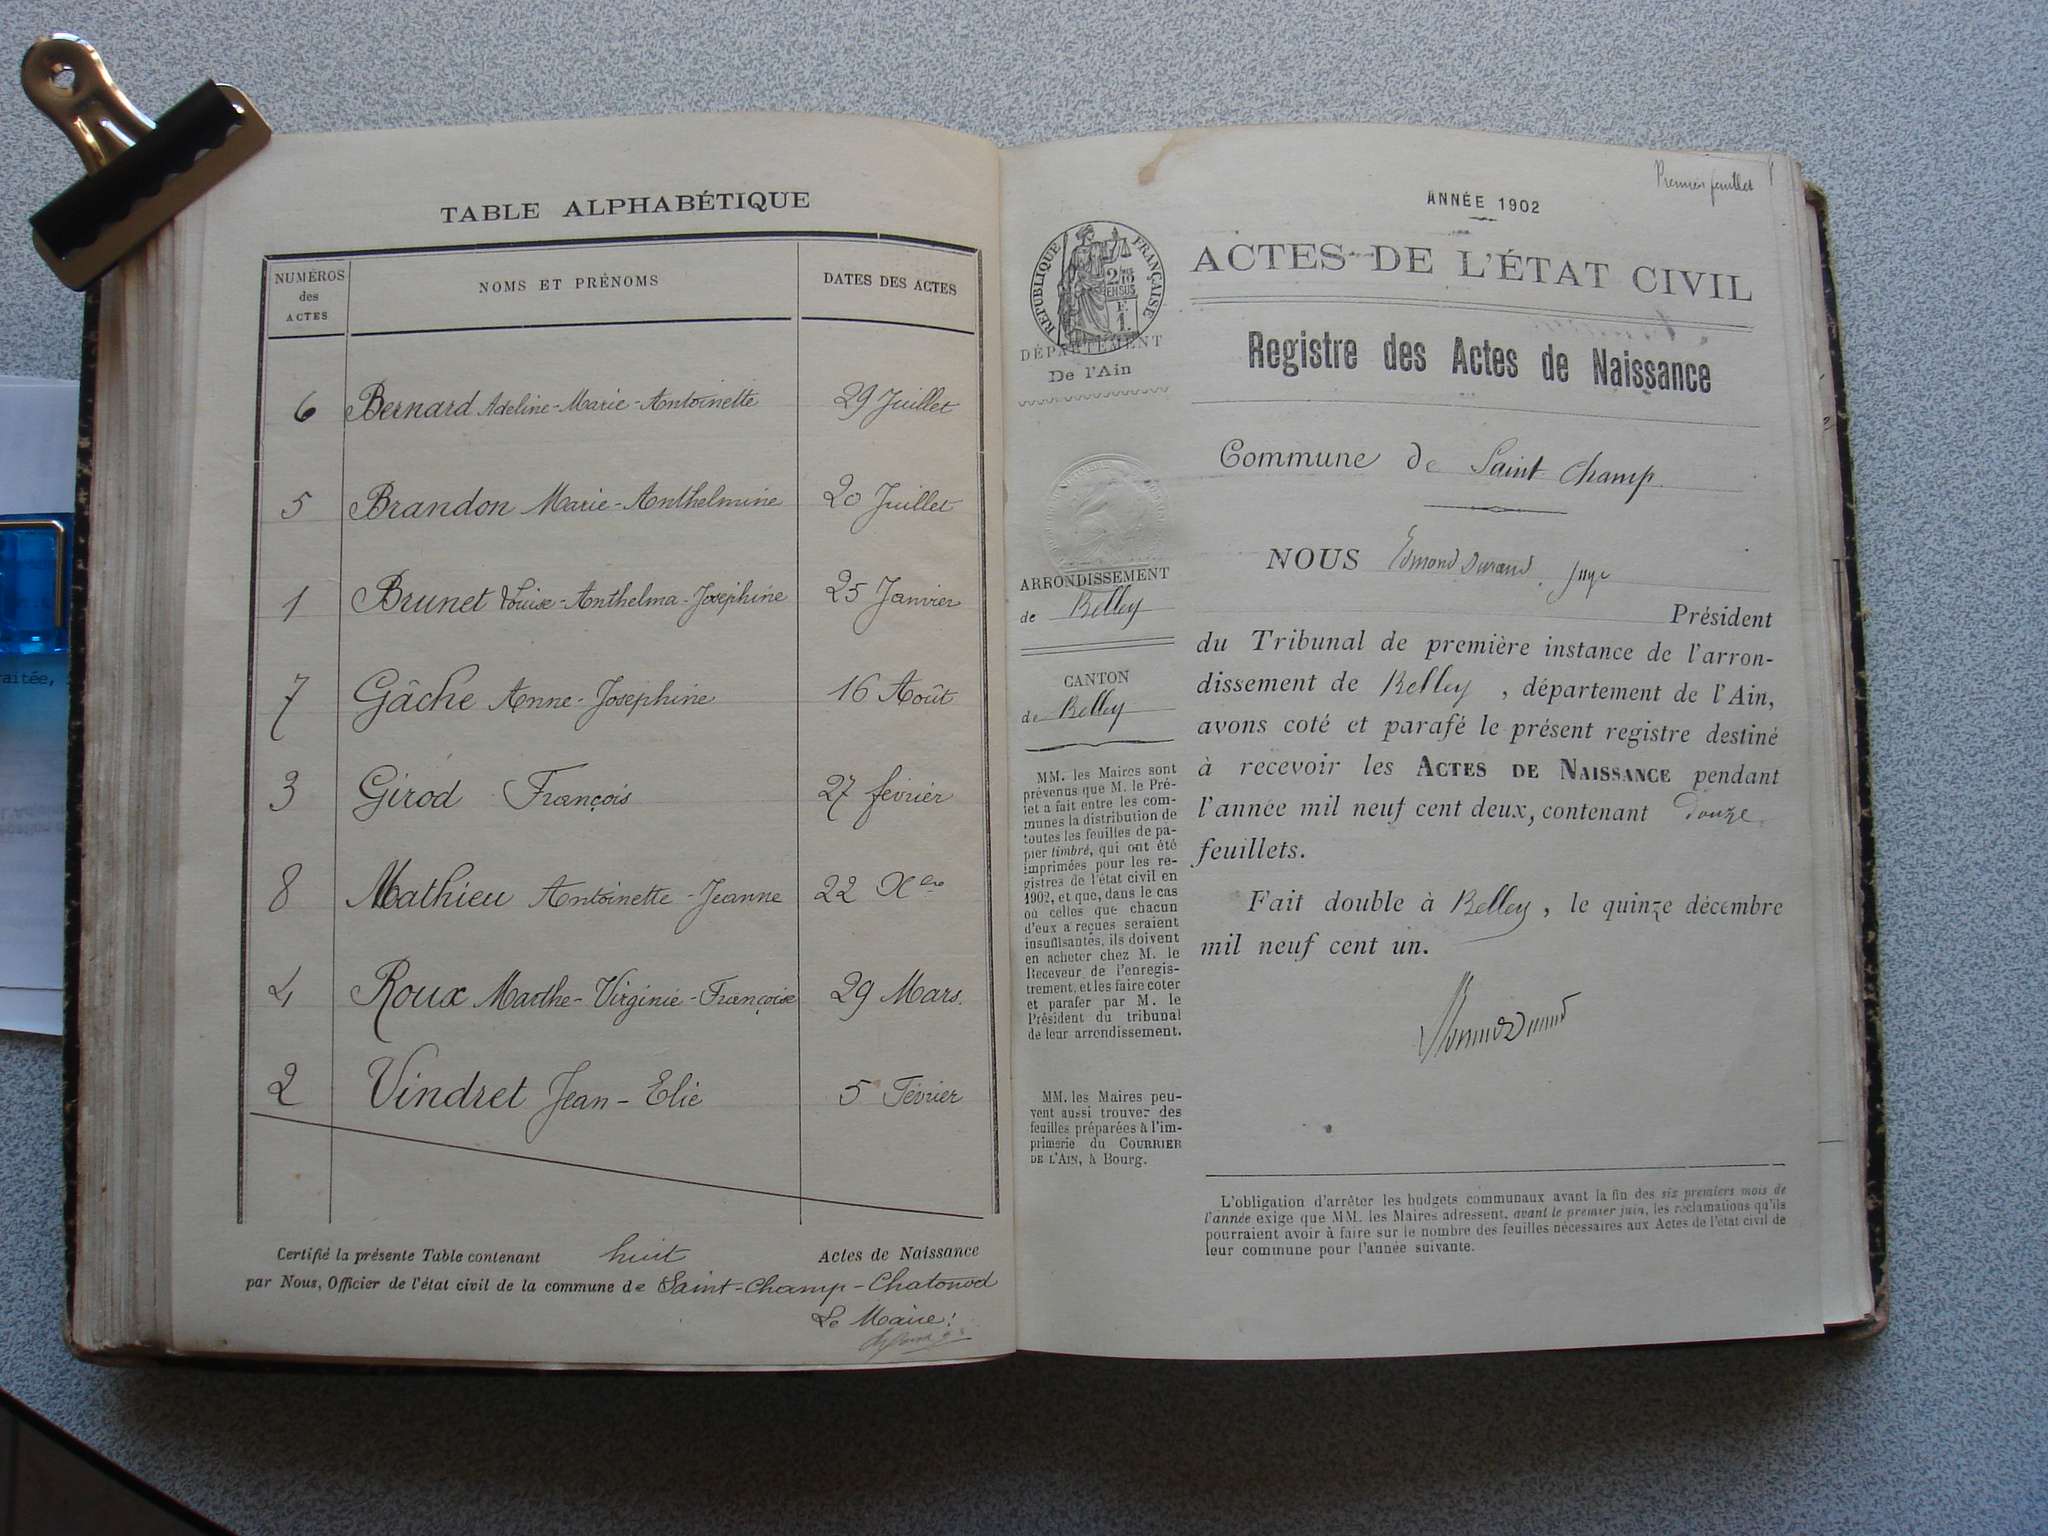 TABLE ALPHABÉTIQUE
NUMÉROS
des
ACTES
NOMS ET PRÉNOMS
DATES DES ACTES
6 Bernard Adeline-Marie-Antoinette 29 Juillet
5 Brandon Marie-Anthelmine 20 Juillet
1 Brunet Louise-Anthelma-Joséphine 25 Janvier
7 Gâche Anne-Joséphine 16 Août
3 Girod François 27 février
8 Mathieu Antoinette-Jeanne 22 Xbre
4 Roux Marthe-Virginie-Françoise 29 Mars.
2 Vindret Jean-Elie 5 Février
Certifié la présente Table contenant huit Actes de Naissance
par Nous, Officier de l'état civil de la commune de Saint-Champ-Chatonod
Le Maire:
Premier feuillet
ANNÉE 1902
ACTES DE L'ÉTAT CIVIL
RÉPUBLIQUE FRANÇAISE
DÉPARTEMENT
De l'Ain
Registre des Actes de Naissance
Commune de Saint-Champ
ARRONDISSEMENT
de Belley
CANTON
de Belley
MM. les Maires sont
prévenus que M. le Pré-
fet a fait entre les com-
munes la distribution de
toutes les feuilles de pa-
pier timbré, qui ont été
imprimées pour les re-
gistres de l'état civil en
1902, et que, dans le cas
où celles que chacun
d'eux a reçues seraient
insuffisantes, ils doivent
en acheter chez M. le
Receveur de l'enregis-
trement, et les faire coter
et parafer par M. le
Président du tribunal
de leur arrondissement.
MM. les Maires peu-
vent aussi trouver des
feuilles préparées à l'im-
primerie du COURRIER
DE L'AIN, à Bourg.
NOUS Edmond Durand, Juge
Président
du Tribunal de première instance de l'arron-
dissement de Belley, département de l'Ain,
avons coté et parafé le présent registre destiné
à recevoir les ACTES DE NAISSANCE pendant
l'année mil neuf cent deux, contenant Douze
feuillets.
Fait double à Belley, le quinze décembre
mil neuf cent un.
L'obligation d'arrêter les budgets communaux avant la fin des six premiers mois de
l'année exige que MM. les Maires adressent, avant le premier juin, les réclamations qu'ils
pourraient avoir à faire sur le nombre des feuilles nécessaires aux Actes de l'état civil de
leur commune pour l'année suivante.